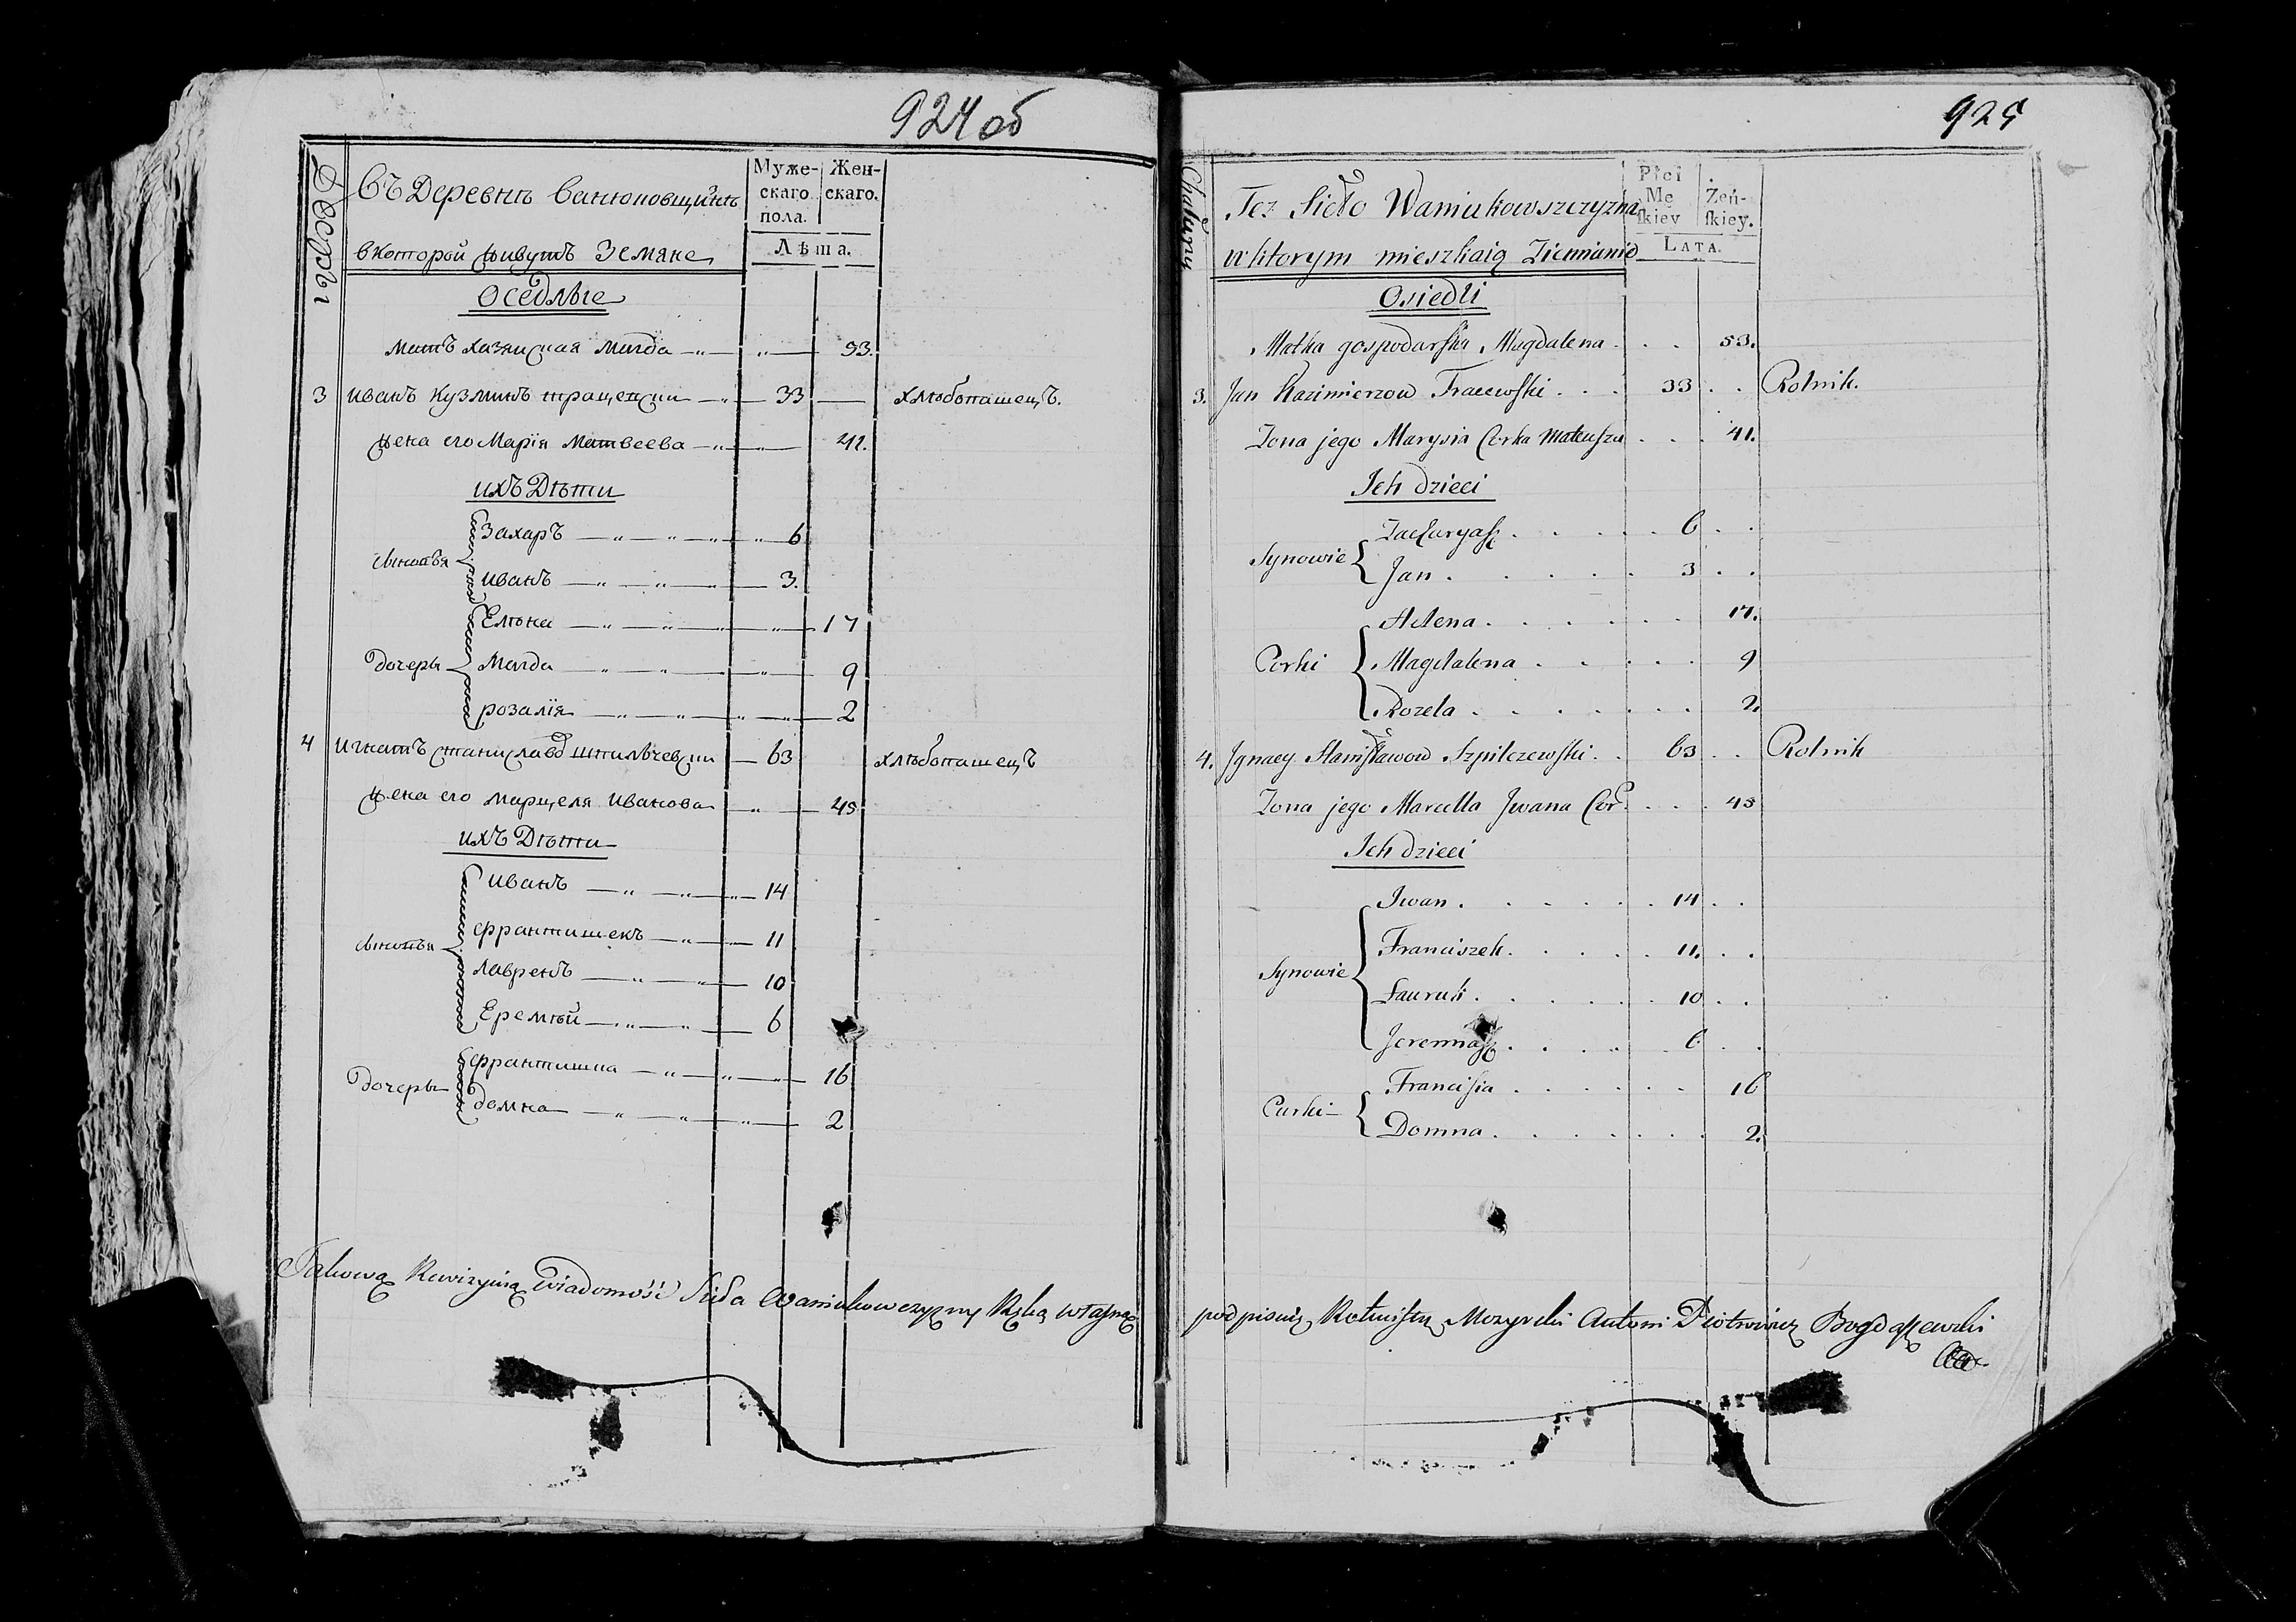 924 об
Дворы
Въ Деревнѣ Ванюковщинѣ
в которой живутъ Земяне
Муже-
скаго
пола.
Жен-
скаго.
Лѣта.
Оседлые
мать хазяиская Магда — " — " — 53.
3 Иванъ Кузминъ — " — 33 — хлѣбопашецъ.
жена его Марія Матвеева — " — " — 41.
ихъ Дѣти
сыновья
Захаръ — " — " — " — " 6
Иванъ — " — " — " — 3.
дочеры
Елѣна — " — " — " — " — 17
Магда — " — " — " — " — 9
розалія — " — " — " — " — 2
4 Игнатъ Станиславов Шпилѣчевски — 63 хлѣбопашецъ
жена его марцеля Иванова — " — 45
ихъ Дѣти
сыновья
Иванъ — " — " — " — 14
Франтишекъ — " — " — 11
лавренъ — " — " — 10
Еремѣй — " — " — 6
дочеры
Франтишка — " — " — " — 16
домна — " — " — " — 2
Takową Rewizyiną Wiadomość Sieła Waniukowczyzny Ręką własną
925
Chałupy
Też Sieło Waniukowszczyzna
w ktorym mieszkaią Ziemianie
Płci
Mę
ſkiey
Żeń-
ſkiey.
LATA.
Osiedli
Matka gospodarska Magdalena . . . 53.
3. Jan Kazimierzow . . . 33 . . Rolnik.
Zona jego Marysia Corka Mateusza . . . 41.
Ich dzieci
Synowie
Zacharyasz . . . . . 6 . .
Jan . . . . . 3 . .
Corki
Helena . . . . . . 17.
Magdalena . . . . . 9
Rozela . . . . . . . 2.
4. Ignacy Stanisławow Szpilczewski . . 63 . . Rolnik
Zona jego Marcella Iwana Cor. . . . 45
Ich dzieci
Synowie
Iwan . . . . . . 14 . .
Franciszek . . . . . 11. . .
Łauruk . . . . . . 10 . .
Jeremiasz . . . . . 6 . .
Curki
Francisia . . . . . . 16
Domna . . . . . . . 2.
podpisuię Rotmistrz Mozyrski Antoni Piotrowicz Bogdaszewski